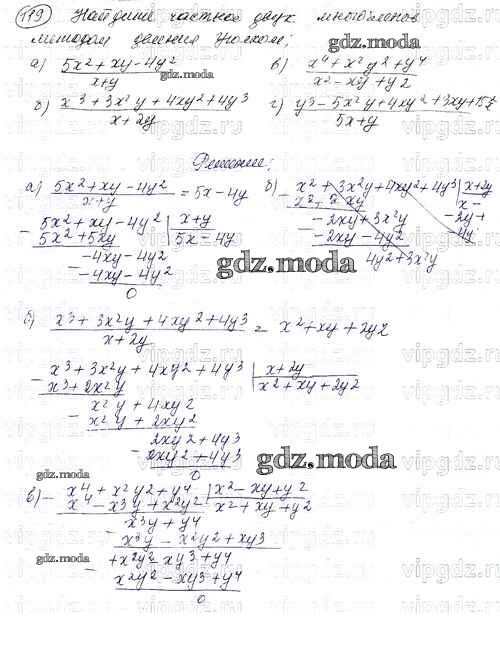 119 Найдите частное двух многочленов
методом деления уголком:
а) 5x² + xy - 4y² / x+y
в) x⁴ + x²y² + y⁴ / x² - xy + y²
б) x³ + 3x²y + 4xy² + 4y³ / x + 2y
г) y³ - 5x²y + 4xy² + 3xy + 15 / 5x+y
gdz.moda
Решение:
а) 5x² + xy - 4y² / x+y = 5x - 4y
- 5x² + xy - 4y² | x+y
5x² + 5xy | 5x - 4y
- -4xy - 4y²
-4xy - 4y²
0
б) - x² + 3x²y + 4xy² + 4y³ | x+2y
x² + 2xy | x -
- -2xy + 3x²y -2y+
-2xy - 4y² -4y
4y² + 3x²y
gdz.moda
б) x³ + 3x²y + 4xy² + 4y³ / x+2y = x² + xy + 2y²
- x³ + 3x²y + 4xy² + 4y³ | x+2y
x³ + 2x²y | x² + xy + 2y²
- x²y + 4xy²
x²y + 2xy²
- 2xy² + 4y³
2xy² + 4y³
0
gdz.moda
gdz.moda
в) - x⁴ + x²y² + y⁴ | x² - xy + y²
x⁴ - x³y + x²y² | x² + xy + y²
- x³y + y⁴
x³y - x²y² + xy³
- + x²y² - xy³ + y⁴
x²y² - xy³ + y⁴
0
vipgdz.ru